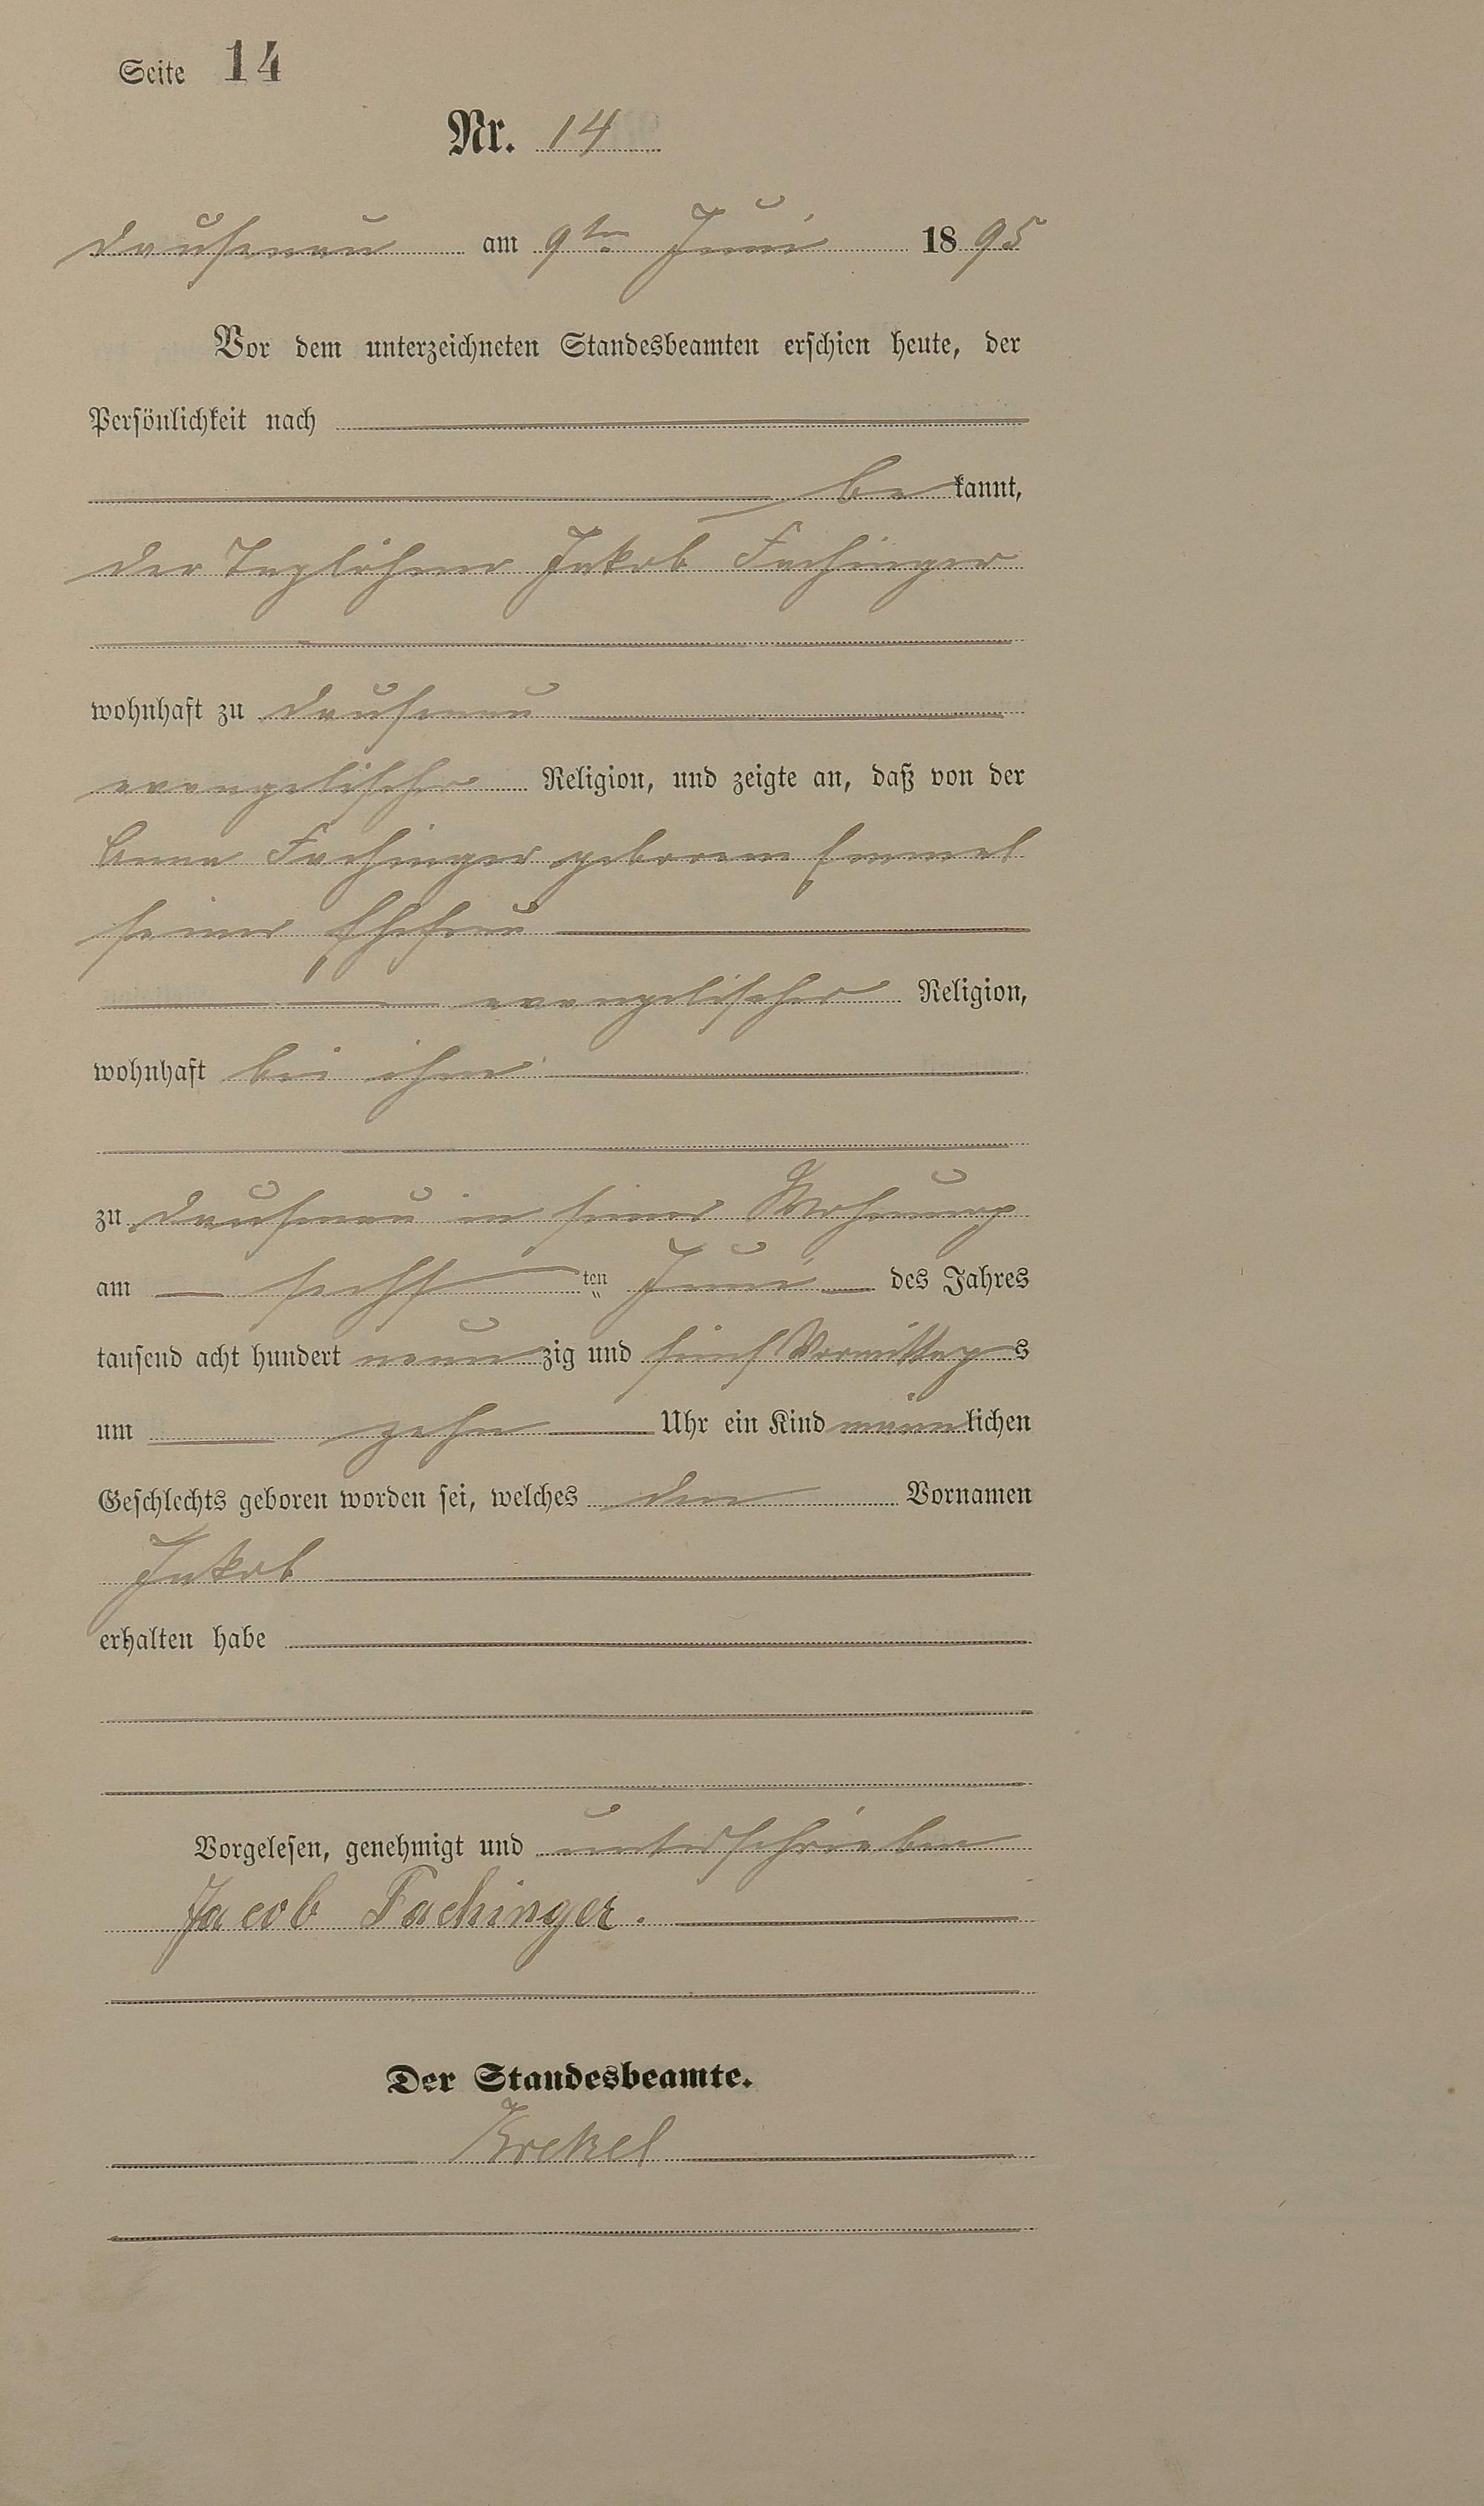 Seite 14
Nr. 14
Dausenau am 9ten Juni 1895
Vor dem unterzeichneten Standesbeamten erschien heute, der
Persönlichkeit nach
bekannt,
der Taglöhner Jakob Fachinger
wohnhaft zu Dausenau
evangelischer Religion, und zeigte an, daß von der
Anna Fachinger geborene Emmel
seiner Ehefrau
evangelischer Religion,
wohnhaft bei ihm
zu Dausenau in seiner Wohnung
am sechsten Juni des Jahres
tausend acht hundert neunzig und fünf Vormittags
um zehn Uhr ein Kind männlichen
Geschlechts geboren worden sei, welches den Vornamen
Jakob
erhalten habe
Vorgelesen, genehmigt und unterschrieben
Jacob Fachinger.
Der Standesbeamte.
Krekel